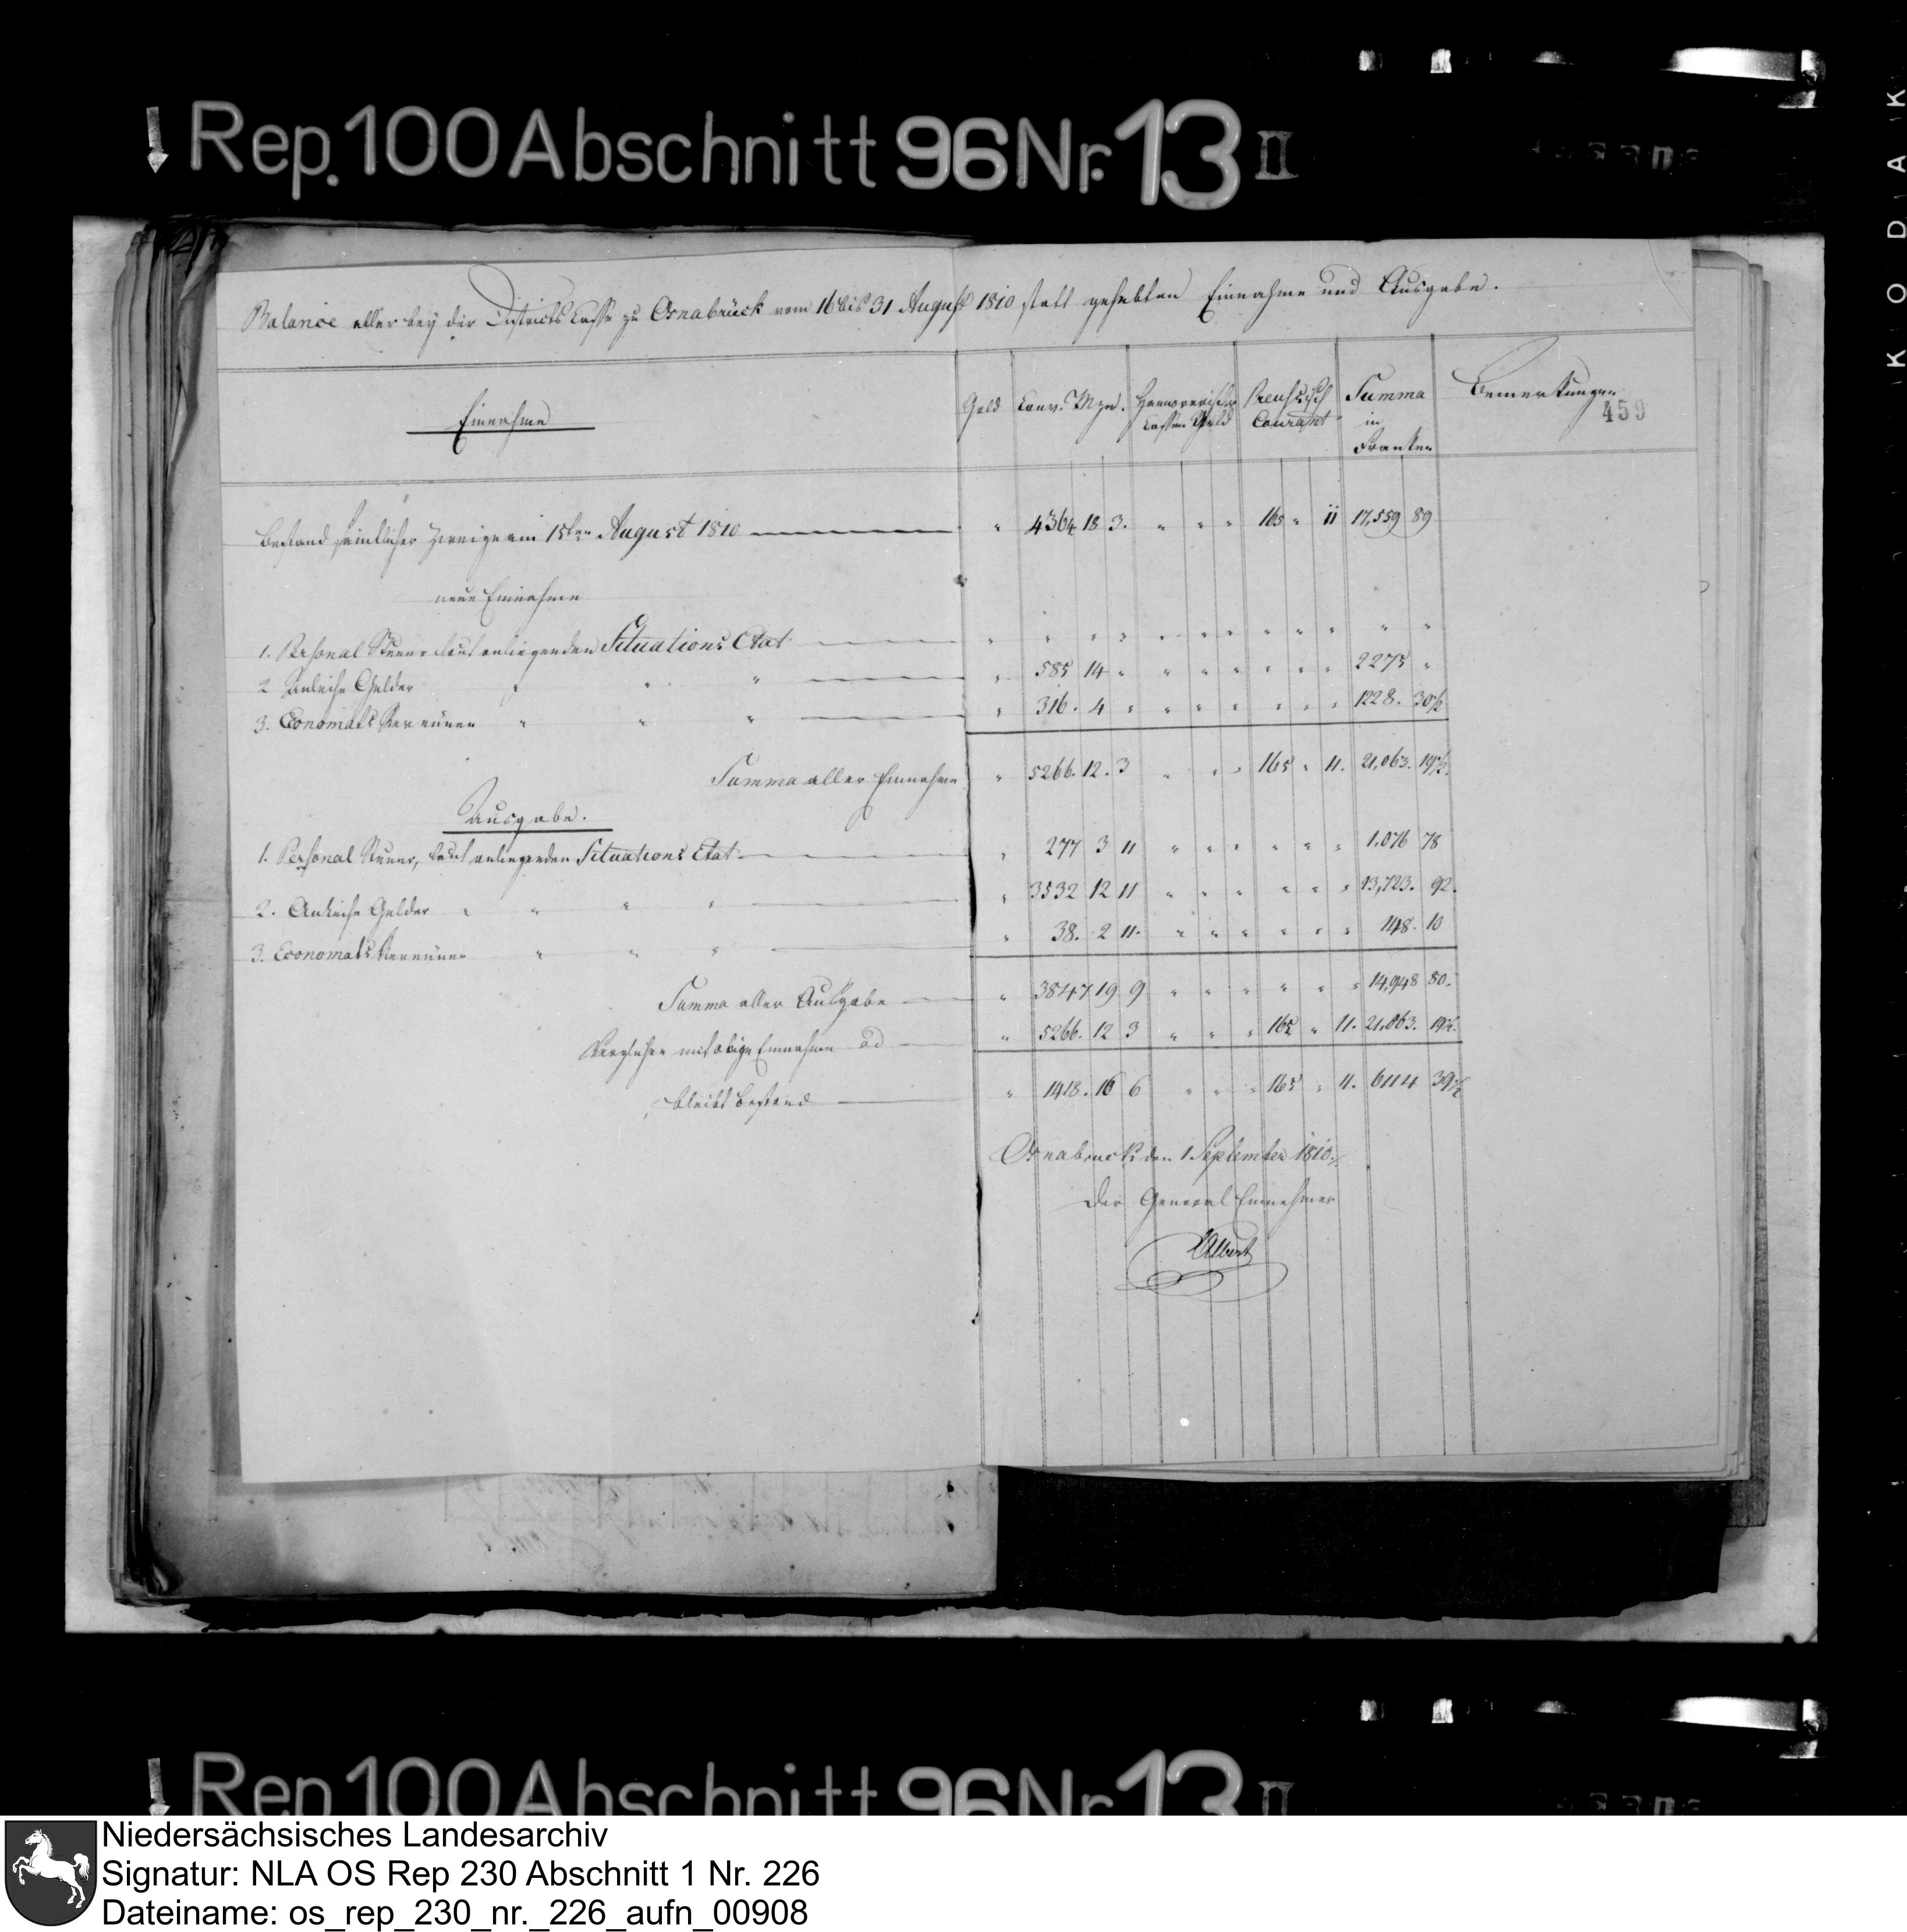 Rep. 100 Abschnitt 96 Nr. 13 II
KODAK
Balance aller bey der Districts Casse zu Osnabrück vom 16 bis 31 August 1810 statt gehabten Einnahme und Ausgabe.
Einnahme
Gold Conv. Mze. Hannoverisches Cassen Geld Preussisch Courant Summa in Franken Bemerkungen
459
Bestand sämtlicher Zweige am 15ten August 1810 " 4364 18 3. " " " 165 " 11 17,559 89
neue Einnahme
1. Personal Steuer laut anliegenden Situations Etat " " " " " " " " " " " "
2 Anleihe Gelder " " " " 585 14 " " " " " " " 2275 "
3. Economats Revenüen " " " " 316. 4 " " " " " " " 1228. 30½
Summa aller Einnahme " 5266. 12. 3 " " " 165 " 11. 21,063. 19½.
Ausgabe.
1. Personal Steuer, laut anliegenden Situations Etat " 277 3 11 " " " " " " 1.076 78
2. Anleihe Gelder " " " " " 3532 12 11 " " " " " " 13,723. 92.
3. Economats Revenüen " " " " 38. 2 11. " " " " " " 148. 10
Summa aller Ausgabe " 3847 19 9 " " " " " " 14,948 80.
Verglichen mit obige Einnahme ad " 5266. 12 3 " " " 165 " 11. 21,063. 19½.
bleibt Bestand " 1418. 16 6 " " " 165 " 11. 6114 39½
Osnabruck den 1 September 1810.
Der General Einnehmer
Albert
Rep. 100 Abschnitt 96 Nr. 13 II
Niedersächsisches Landesarchiv
Signatur: NLA OS Rep 230 Abschnitt 1 Nr. 226
Dateiname: os_rep_230_nr._226_aufn_00908